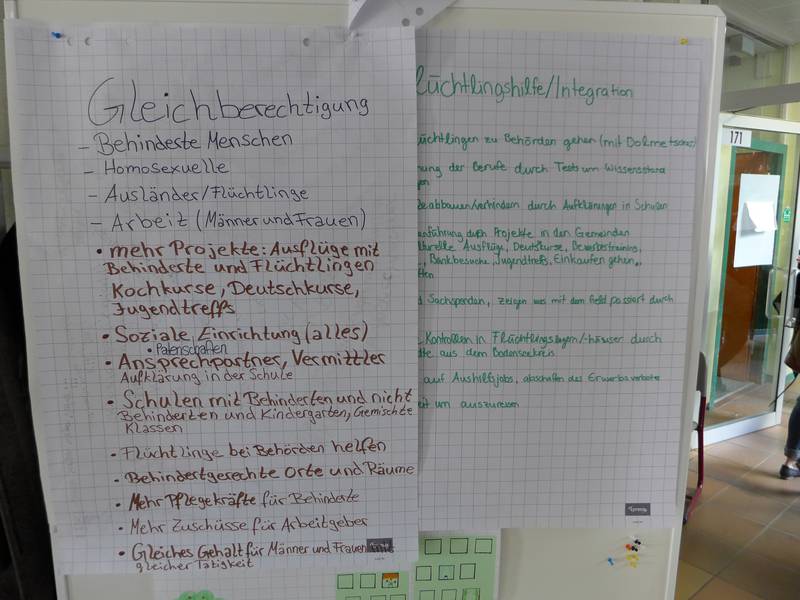 Gleichberechtigung
- Behinderte Menschen
- Homosexuelle
- Ausländer/Flüchtlinge
- Arbeit (Männer und Frauen)
• mehr Projekte: Ausflüge mit
Behinderte und Flüchtlingen
Kochkurse, Deutschkurse,
Jugendtreffs
• Soziale Einrichtung (alles)
• Patenschaften
• Ansprechpartner, Vermittler
Aufklärung in der Schule
• Schulen mit Behinderten und nicht
Behinderten und Kindergarten, Gemischte
Klassen
• Flüchtlinge bei Behörden helfen
• Behindertgerechte Orte und Räume
• Mehr Pflegekräfte für Behinderte
• Mehr Zuschüsse für Arbeitgeber
• Gleiches Gehalt für Männer und Frauen
gleicher Tätigkeit
lüchtlingshilfe/Integration
üchtlingen zu Behörden gehen (mit Dolmetscher)
ung der Berufe durch Tests um Wissensstand
abbauen/verhindern durch Aufklärungen in Schulen
führung durch Projekte in den Gemeinden
turelle Ausflüge, Deutschkurse, Bewerbstraining,
Bankbesuche, Jugendtreffs, Einkaufen gehen,
Sachspenden, zeigen was mit dem Geld passiert durch
Kontrollen in Flüchtlingslagern/-häuser durch
aus dem Bodenseekreis
auf Aushilfsjobs, abschaffen des Erwerbsverbots
eit um auszureisen
171